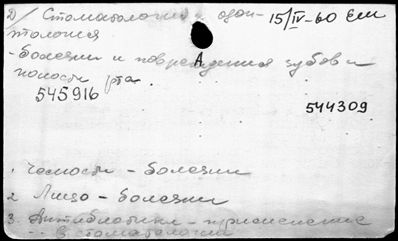 D/ Стоматология и одон- 15/IV-60 Ели
тология
- Болезни и повреждения зубов и
полости рта.
А
545916
544309
1. Челюсти - болезни
2 Лицо - болезни
3. Антибиотики - применение
в стоматологии